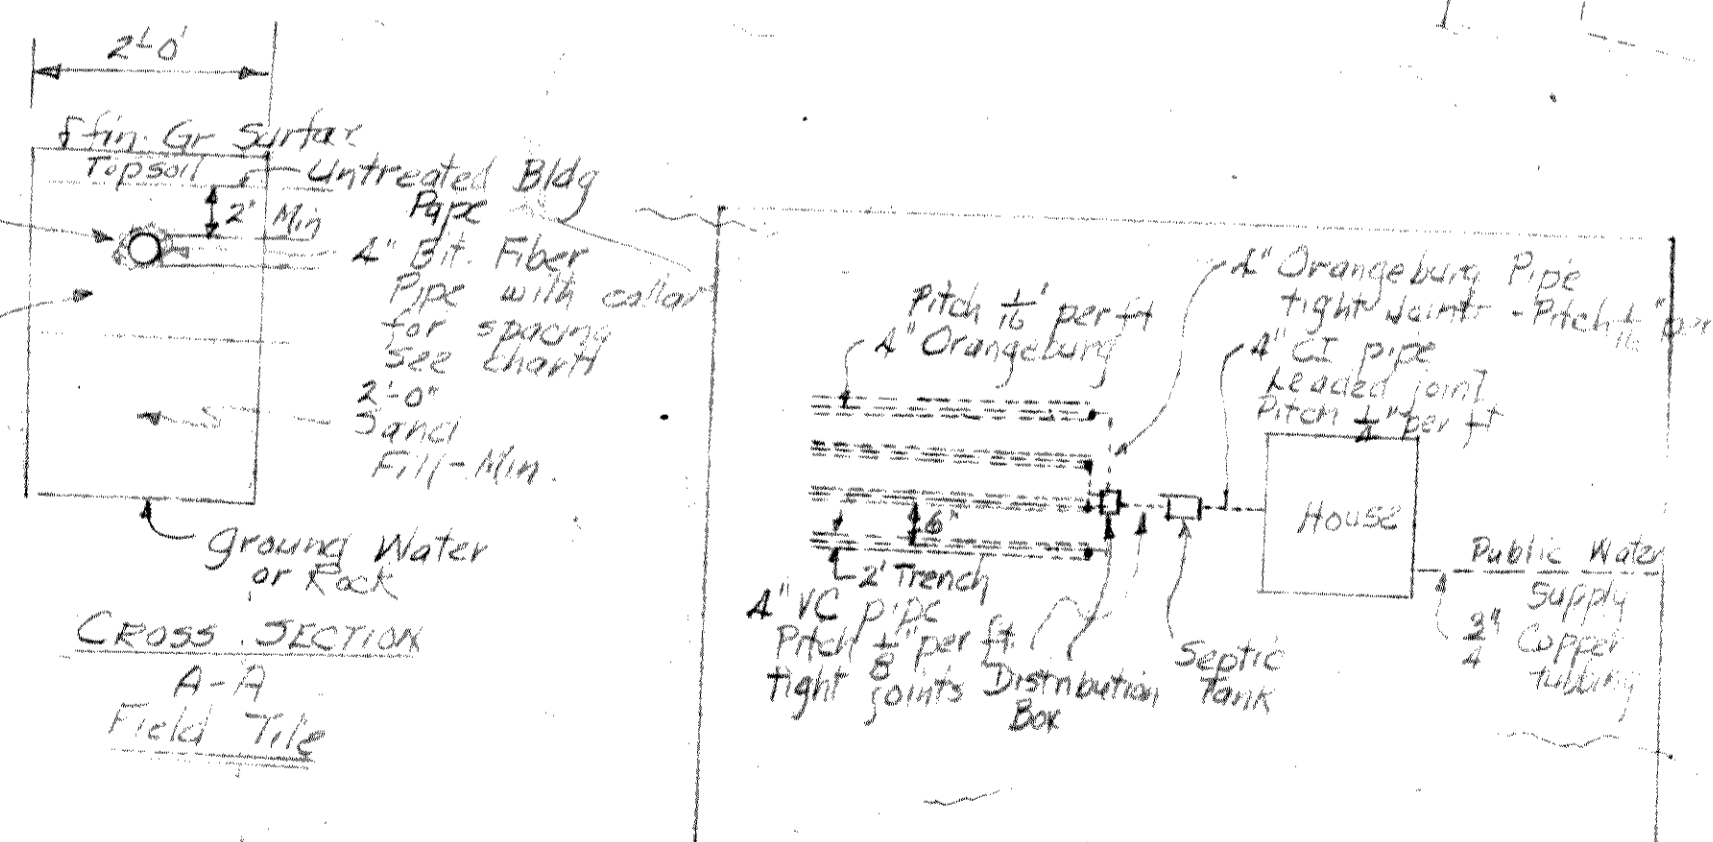 2'-0"
fin. Gr Surfac
Topsoil
Untreated Bldg
Pape
2" Min
4" Bit. Fiber
Pipe with collar
for spacing
see chart
2'-0"
Sand
Fill-Min.
Ground Water
or Rock
CROSS SECTION
A-A
Field Tile
Pitch 1/16" per ft
4" Orangeburg
4" Orangeburg Pipe
tight Joints - Pitch 1/16" per
4" CI pipe
Leaded joint
Pitch 1/4" per ft
House
6"
2' Trench
4" VC pipe
Pitch 1/8" per ft
tight joints
Distribution
Box
Septic
Tank
Public Water
Supply
3/4"
Copper
tubbing